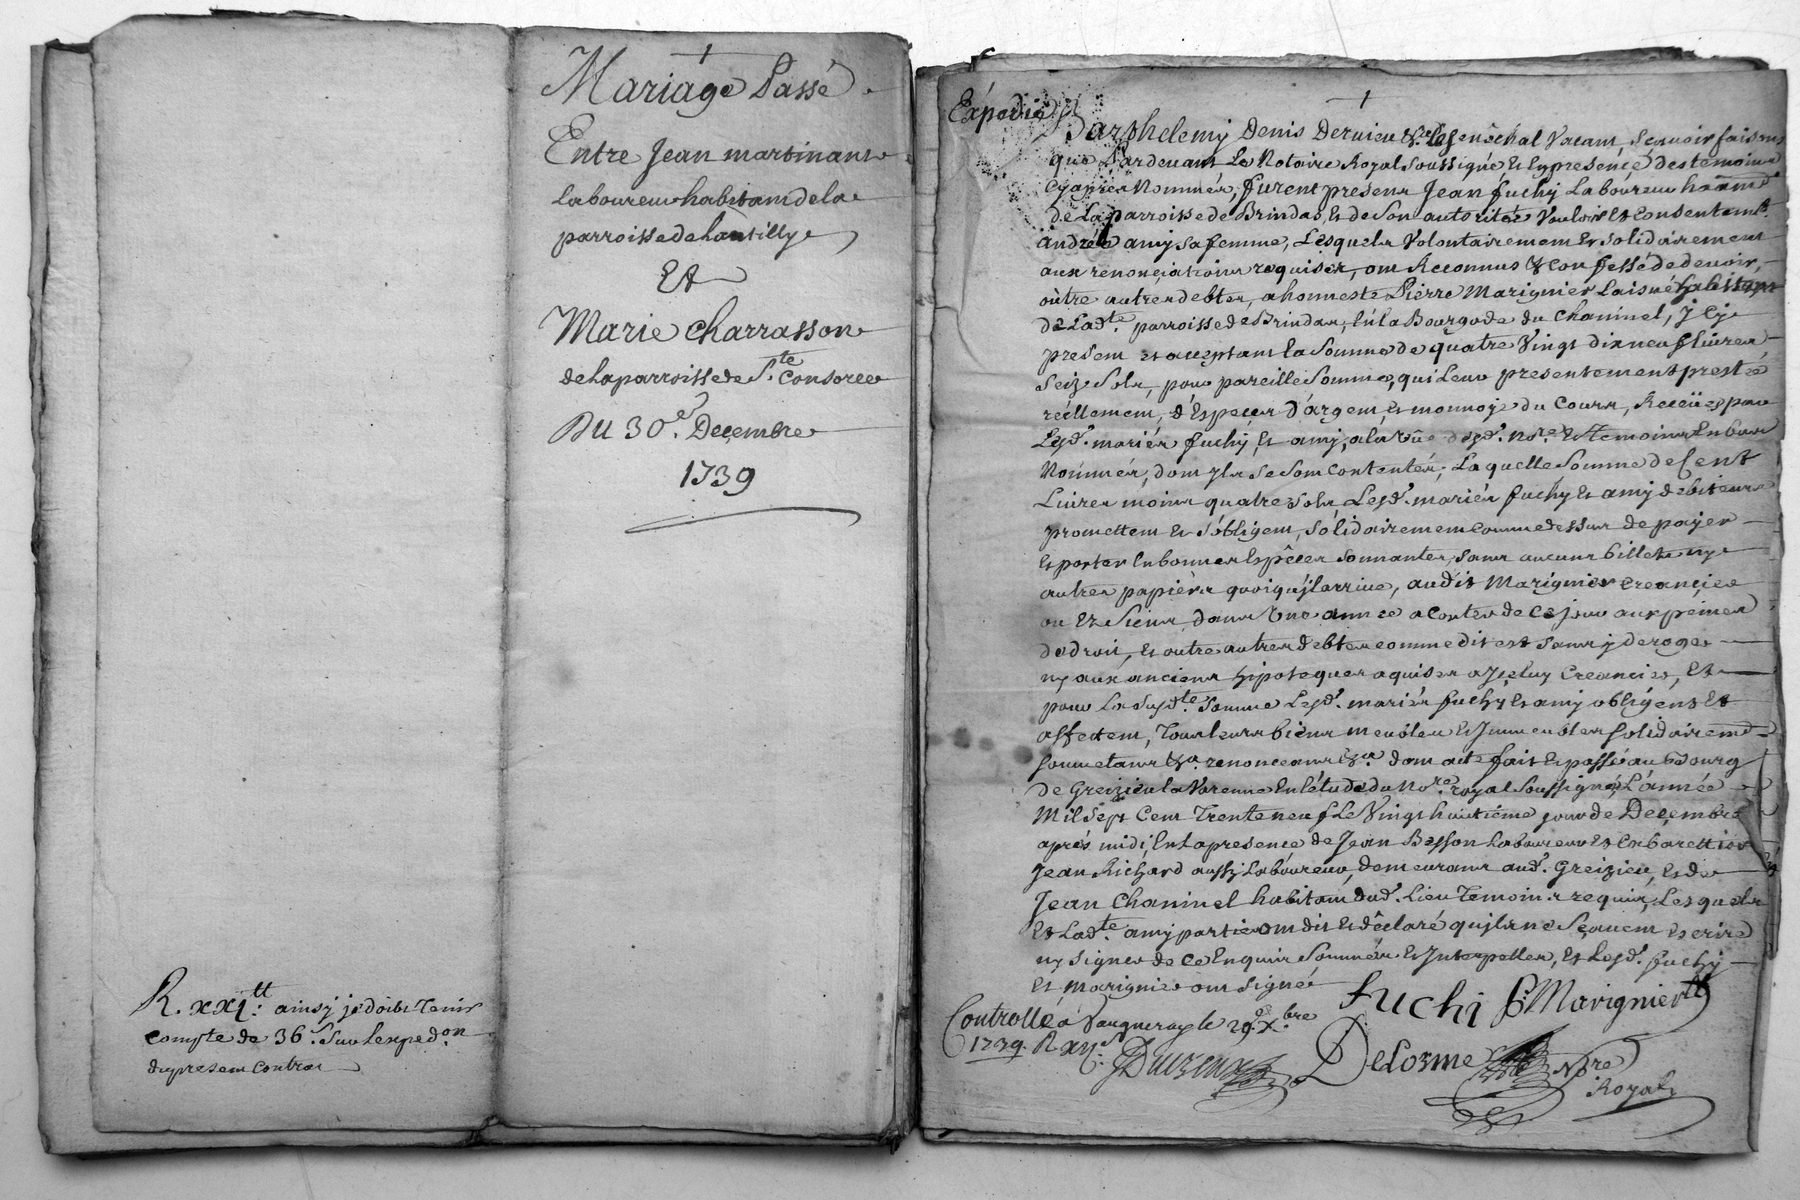 Mariage Passé
Entre Jean martinant
Laboureur habitant de la
parroisse de hantilly
Et
Marie charrasson
de la parroisse de Ste Consorce
Du 30e. Decembre
1739
R. xxjtt: ainsy je doibt Tenir
compte de 36s. Sur Lexped.on
du present contrat
Expedié
Barthelemy Denis Dervieu &a. Le Senéchal Vacant, Sçavoir faisons
que Pardevant Le Notaire Royal Soussigné Et En presence des temoins
Cy apres Nommés, furent presens Jean fuchy Laboureur habitt
de La parroisse de Brindas, Et de Son autorité Vouloir Et Consentemt.
andrée amy sa femme, Lesquels Volontairement Et Solidairement
aux renonçiations requises, ont Reconnus & Confessé de devoir,
oûtre autres debtes, a honneste Pierre Marignier Laisné habitant
de Ladte. parroisse de Brindas, En la Bourgade du Chaninel, Jcy
present et acceptant la Somme de quatre Vingt dix neuf Livres
Seize Sols, pour pareille Somme, qui Leur presentement presté
réellement, d'Especes D'argent, Et monnoye du Cours, Receües par
Lesd. mariés fuchy, Et amy, a la vûe desd. Nore. Et temoins En bas
Nommés, dont Jls Se Sont Contentés, La quelle Somme de Cent
Livres moins quatre Sols Lesd. mariés fuchy Et amy debiteurs
promettent Et S'obligent, Solidairement comme dessus de payer
Et porter En bonnes Espêces Sonnantes, Sans aucuns billets ny
autres papiers quoi qu'jl arrive, audit Marignier Creançier
ou Ez Siens, dans Une année a Conter de Ce jour aux peines
de droit, Et outre autres debtes comme dit est Sans y deroger
ny aux anciens hipoteques aquises a Jceluy Creancier, Et
pour La Susdte. Somme Lesd. mariés fuchy Et amy obligens Et
affectent, Tous leurs biens meubles Et Jmmeubles Solidairemt.
Soumetans &a. renonceans &a. dont acte fait Et passé au Bourg
de Greizieu la Varenne En létude du Nore. royal Soussigné, L'année
Mil Sept Cent Trente neuf Le Vingt huitième jour de Decembre
aprés midi, En La presence de Jean Besson Laboureur Et Cabarettier
Jean Richard aussy Laboureur, demeurans aud. Greizieu, Et de
Jean Chaninel habitant dud. Lieu Temoins requis, Lesquels
Et Ladte. amy partie ont dit Et déclaré qu'jls ne Sçavent Escrire
ny Signer de Ce Enquis Sommés Et Jnterpellés, Et Lesd. fuchy
et marignier ont Signé
fuchi P: Marignier
Controllé a Vaugneray le 29e Xbre
1739. R xijs.
Delorme Nore
Royal